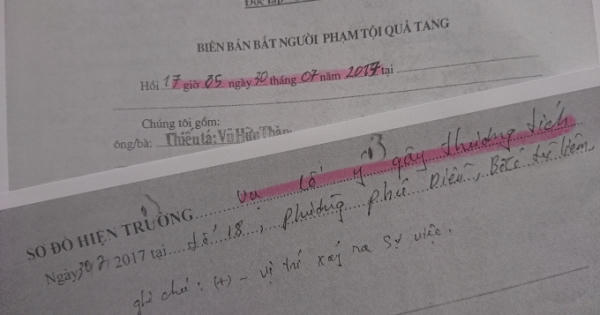 Độc lập
BIÊN BẢN BẮT NGƯỜI PHẠM TỘI QUẢ TANG
Hồi 17 giờ 05 ngày 30 tháng 07 năm 2017 tại
Chúng tôi gồm:
ông/bà: Thiếu tá: Vũ Hữu
SƠ ĐỒ HIỆN TRƯỜNG Vụ cố ý gây thương tích
Ngày 30/7 2017 tại tổ 18, phường Phú Diễn, Bắc từ liêm
ghi chú: (+) - vị trí xảy ra sự việc.